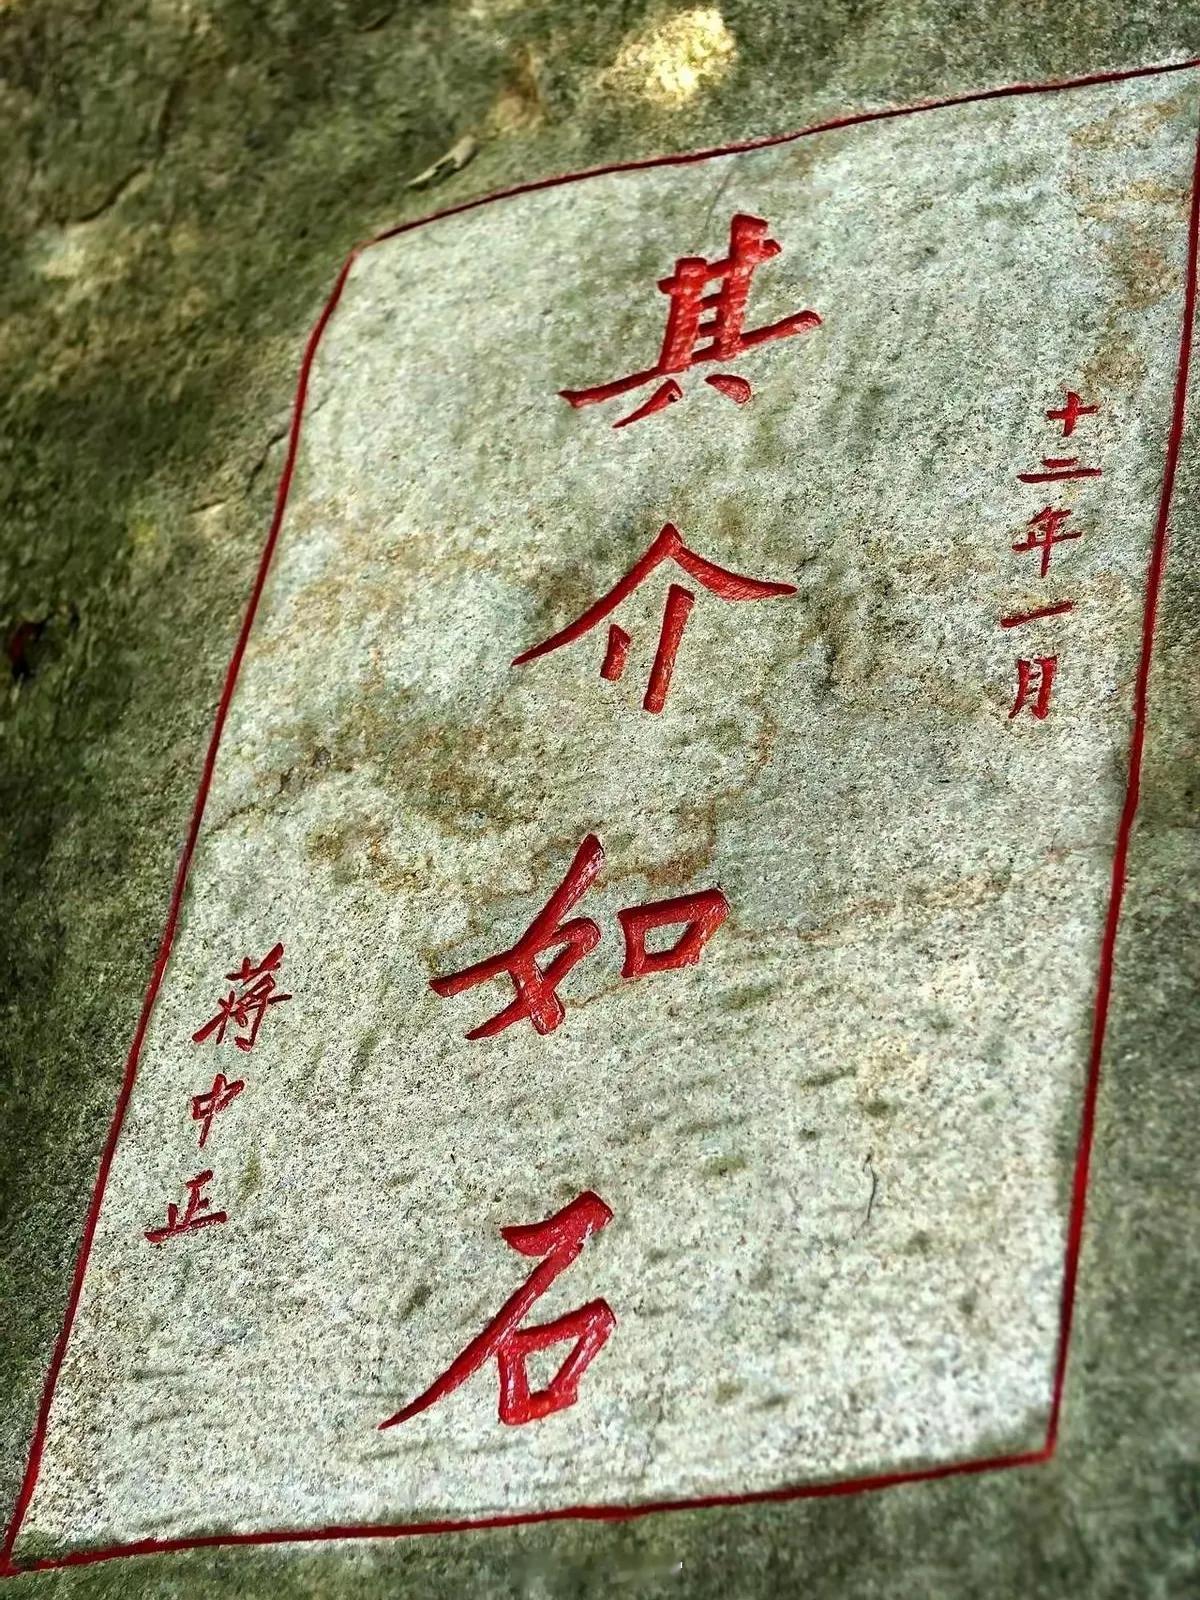 十二年一月
其介如石
蒋中正